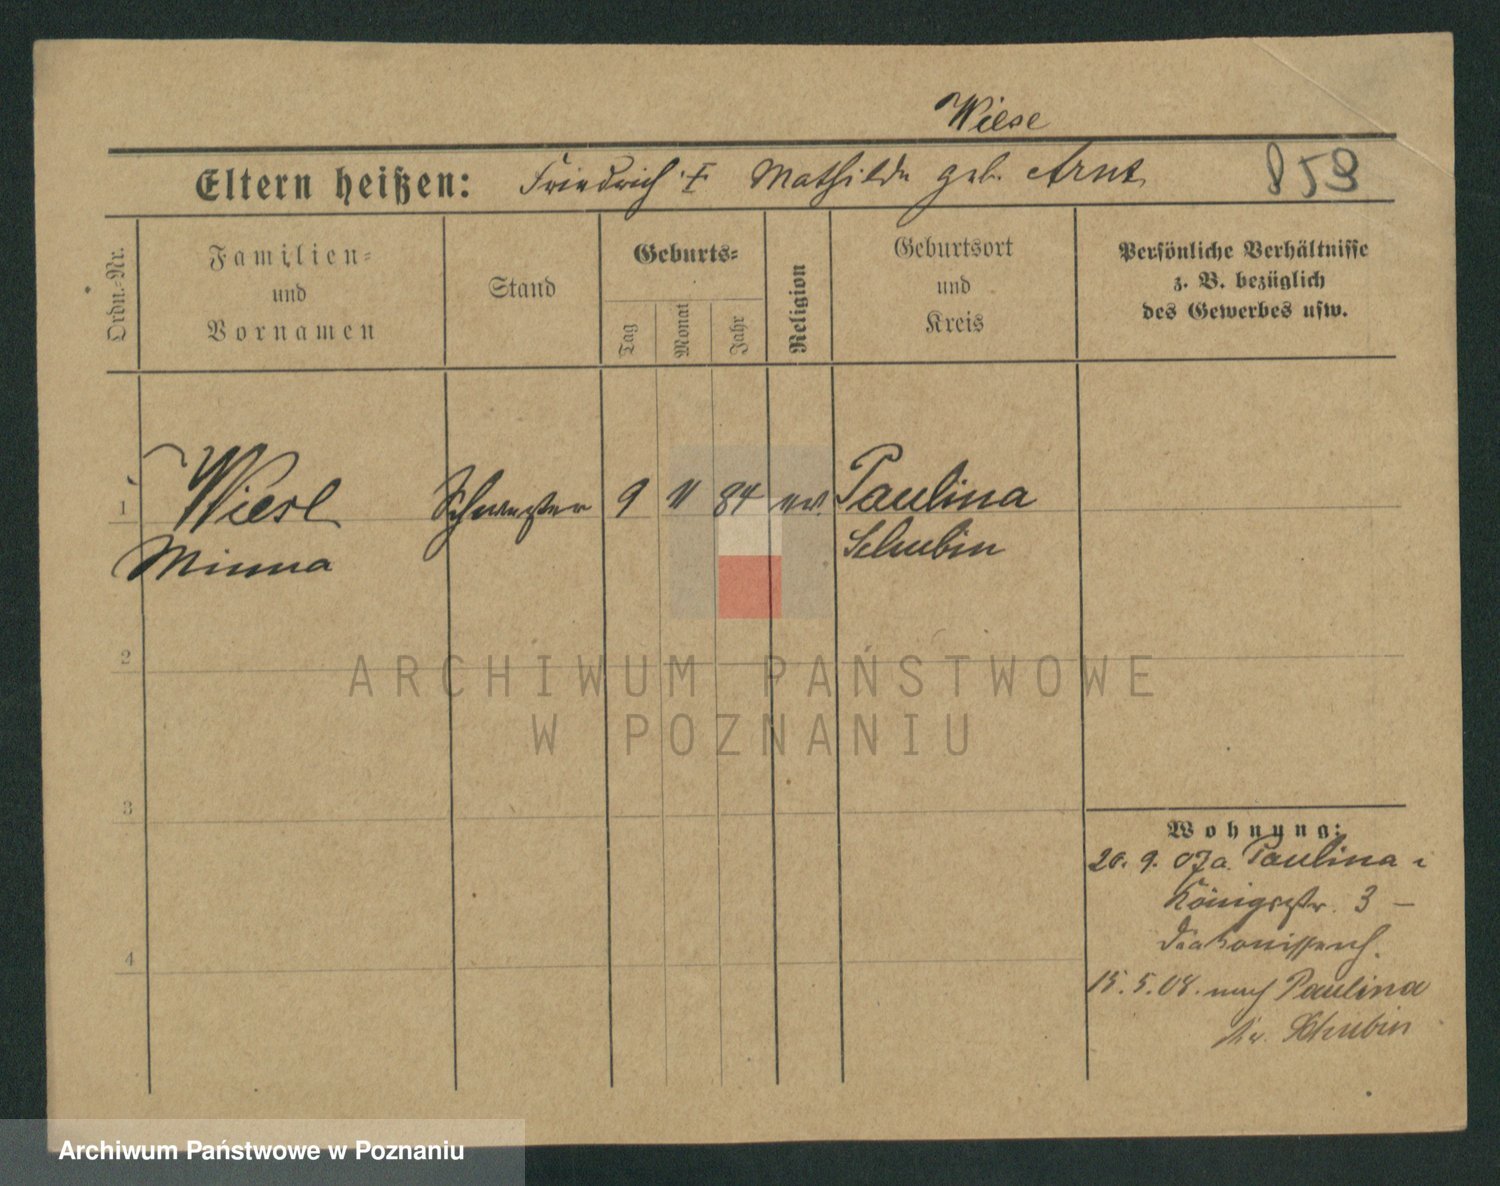 Wiese
Eltern heißen: Friedrich † Mathilde geb. Arnt 859
Ordn.-Nr.
Familien-
und
Vornamen
Stand
Geburts-
Tag
Monat
Jahr
Religion
Geburtsort
und
Kreis
Persönliche Verhältnisse
z. B. bezüglich
des Gewerbes usw.
1 Wiese Schwester 9 11 84 ev. Paulina
Minna Schubin
2
3
4
Wohnung:
20. 9. 07 a. Paulina i
Königstr. 3 –
Diakonissenh.
15. 5. 08. nach Paulina
Kr. Schubin
ARCHIWUM PAŃSTWOWE
W POZNANIU
Archiwum Państwowe w Poznaniu